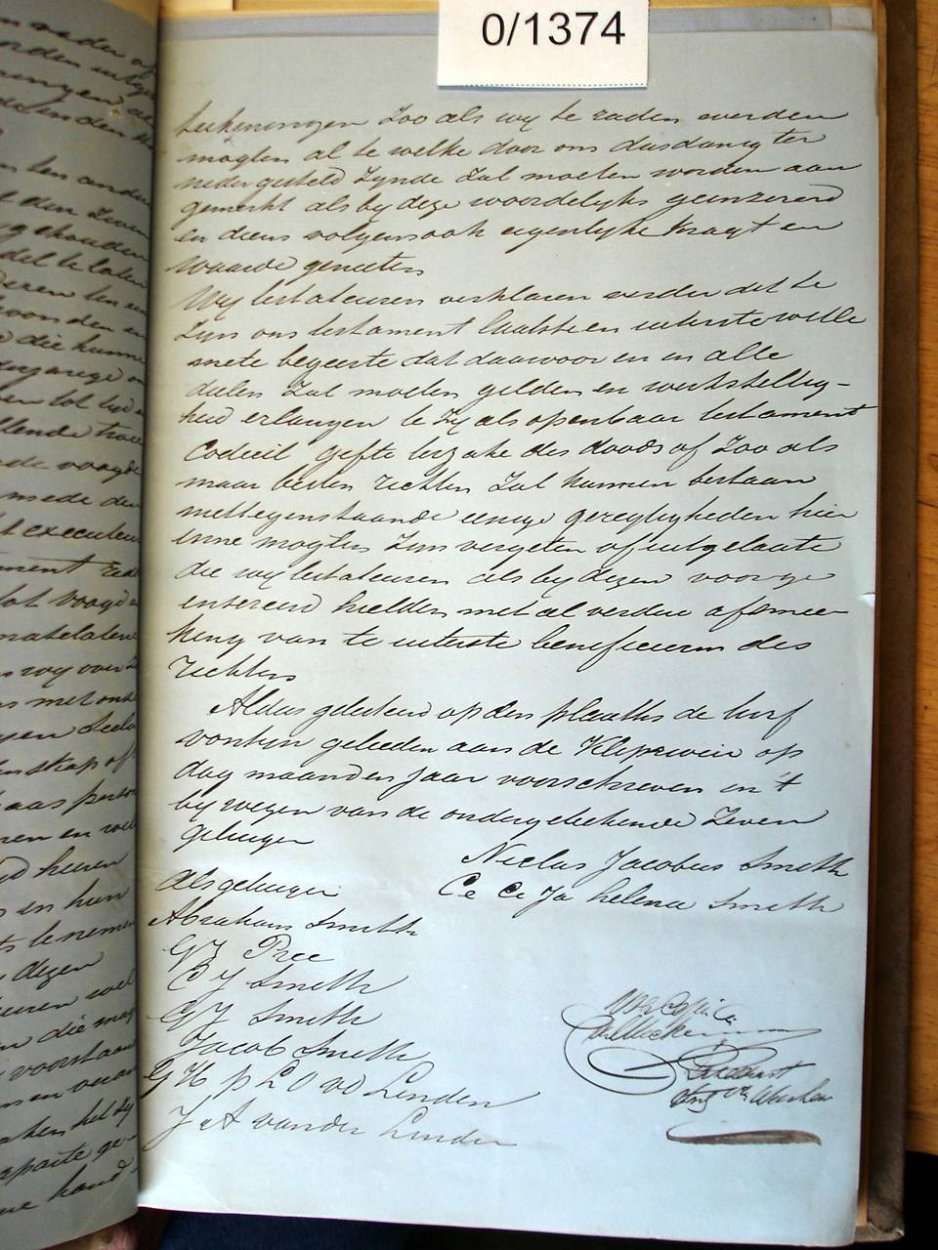 0/1374
teekeningen Zoo als wy te raden werden
mogten al te welke door ons dusdanig ter
neder gesteld Zynde Zal moeten worden aan
gemerkt als by deze woordelyks geinzereerd
en diens volgens ook eigenlyke kragt en
waarde genieten
Wy testateuren verklaren verder dat te
Zyn ons testament laatste en uiterste wille
mete begeerte dat daarvoor en in alle
delen Zal moeten gelden en werkstellig-
heid erlangen te Zy als openbaar testament
Codicil gifte terzake des doods of Zoo als
maar besten rechten Zal kunnen bestaan
niettegenstaande eenige geregtigheden hier
inne mogten Zyn vergeten of uitgelaten
die wy testateuren als by dezen voor ge
insereerd hielden met al verdere afsmee-
king van te uiterste beneficieren des
rechters
Aldus gedaan op den plaats de turf
vonken geleden aan de Kliprivier op
dag maand en Jaar voorschreven in 't
by wezen van de ondergeteekende Zeven
getuigen
Niclas Jacobus Smith
Ce Ce Ja helena Smith
Als getuigen
Abraham Smith
GJ Pree
CJ Smith
GJ Smith
Jacob Smith
GH p L O vd Linden
J A vander Linden